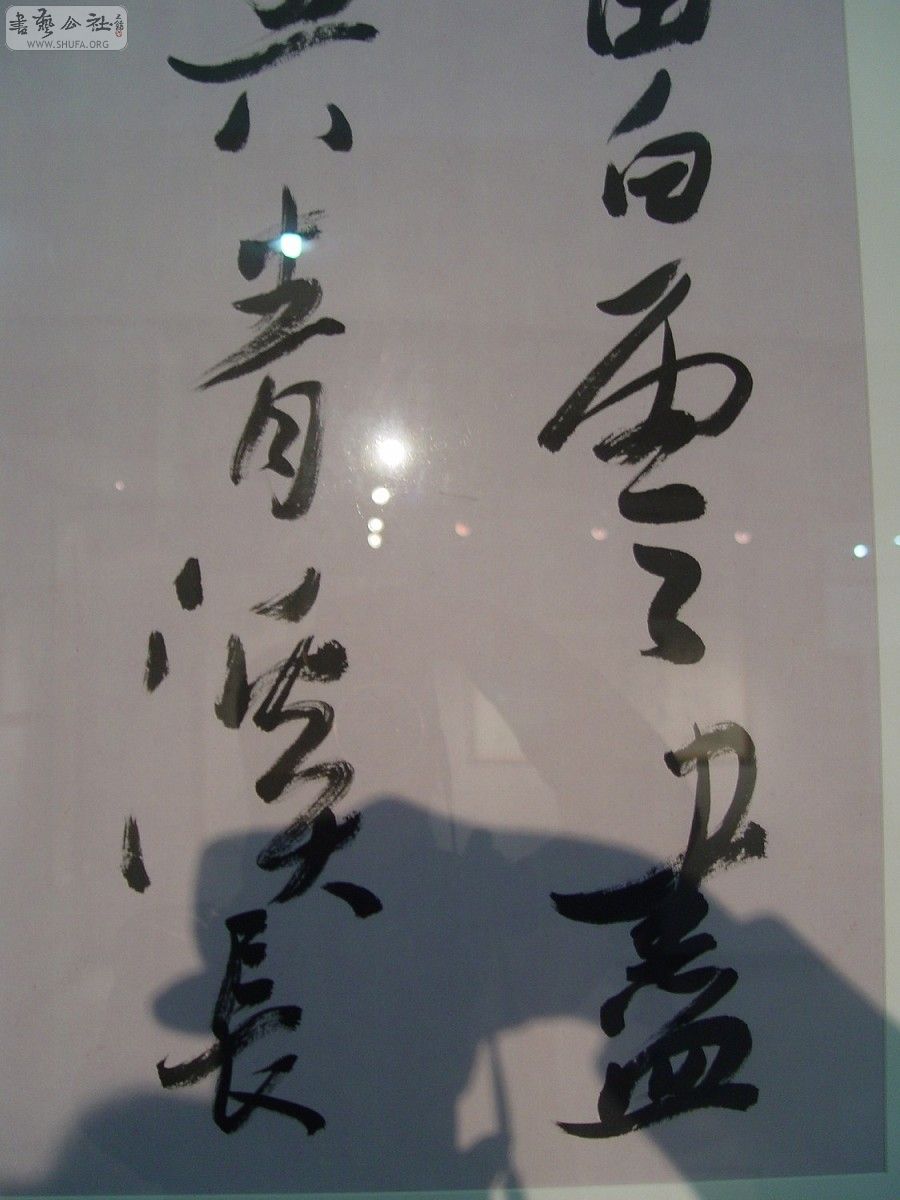 書藝公社
WWW.SHUFA.ORG
由白雲盡
與青溪長